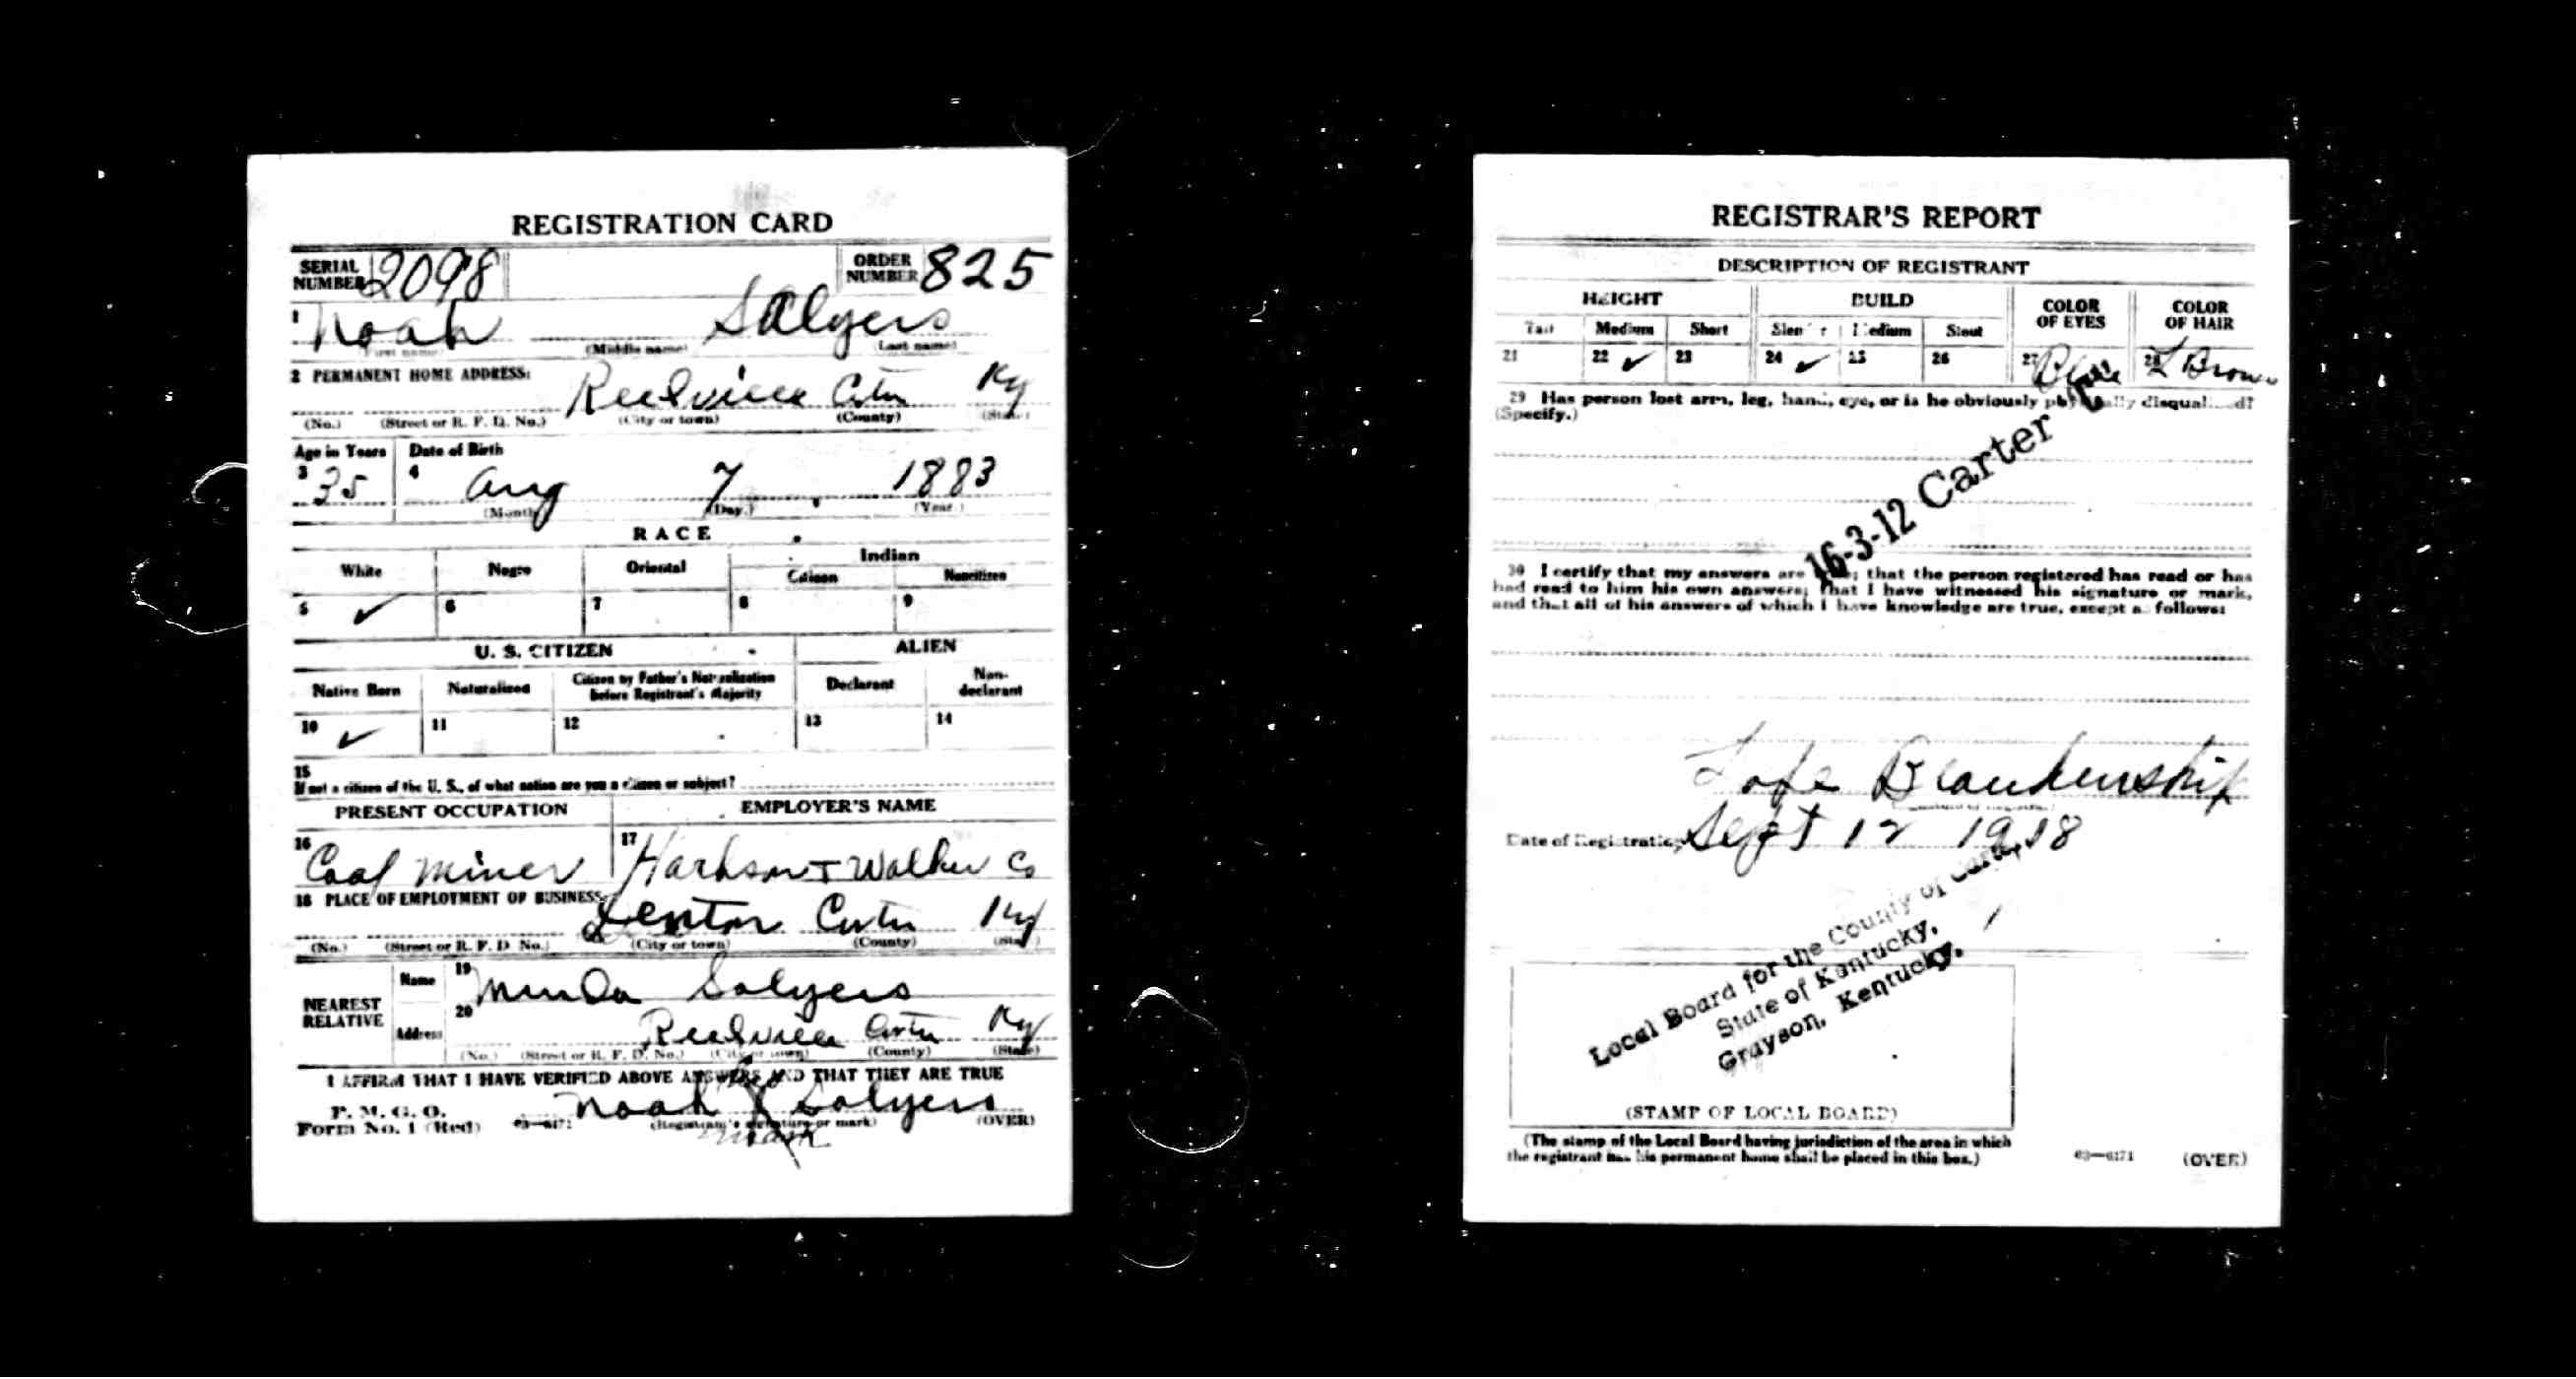 REGISTRATION CARD
SERIAL NUMBER 2098
ORDER NUMBER 825
1 Noah Salyers
(First name) (Middle name) (Last name)
2 PERMANENT HOME ADDRESS:
Ky
(No.) (Street or R. F. D. No.) (City or town) (County) (State)
Age in Years Date of Birth
3 35 4 Aug 7 1883
(Month) (Day.) (Year.)
RACE
White Negro Oriental Indian
Citizen Noncitizen
5 ✓ 6 7 8 9
U. S. CITIZEN ALIEN
Native Born Naturalized Citizen by Father's Naturalization before Registrant's Majority Declarant Non-declarant
10 ✓ 11 12 13 14
15
If not a citizen of the U. S., of what nation are you a citizen or subject?
PRESENT OCCUPATION EMPLOYER'S NAME
16 Coal Miner 17 Walker Co
18 PLACE OF EMPLOYMENT OR BUSINESS:
Denton Ky
(No.) (Street or R. F. D. No.) (City or town) (County) (State)
NEAREST RELATIVE
Name 19 Salyers
Address 20 Ky
(No.) (Street or R. F. D. No.) (City or town) (County) (State)
I AFFIRM THAT I HAVE VERIFIED ABOVE ANSWERS AND THAT THEY ARE TRUE
P. M. G. O.
Form No. 1 (Red) 03—6171
Noah X Salyers
(Registrant's signature or mark) (OVER)
mark
REGISTRAR'S REPORT
DESCRIPTION OF REGISTRANT
HEIGHT BUILD COLOR OF EYES COLOR OF HAIR
Tall Medium Short Slender Medium Stout
21 22 ✓ 23 24 ✓ 25 26 27 Blue 28 L Brown
29 Has person lost arm, leg, hand, eye, or is he obviously physically disqualified?
(Specify.)
16-3-12 Carter
30 I certify that my answers are true; that the person registered has read or has
had read to him his own answers; that I have witnessed his signature or mark,
and that all of his answers of which I have knowledge are true, except as follows:
Blankenship
Date of Registration Sept 12 1918
Local Board for the County of Carter,
State of Kentucky,
Grayson, Kentucky.
(STAMP OF LOCAL BOARD)
(The stamp of the Local Board having jurisdiction of the area in which
the registrant has his permanent home shall be placed in this box.)
03—6171 (OVER)